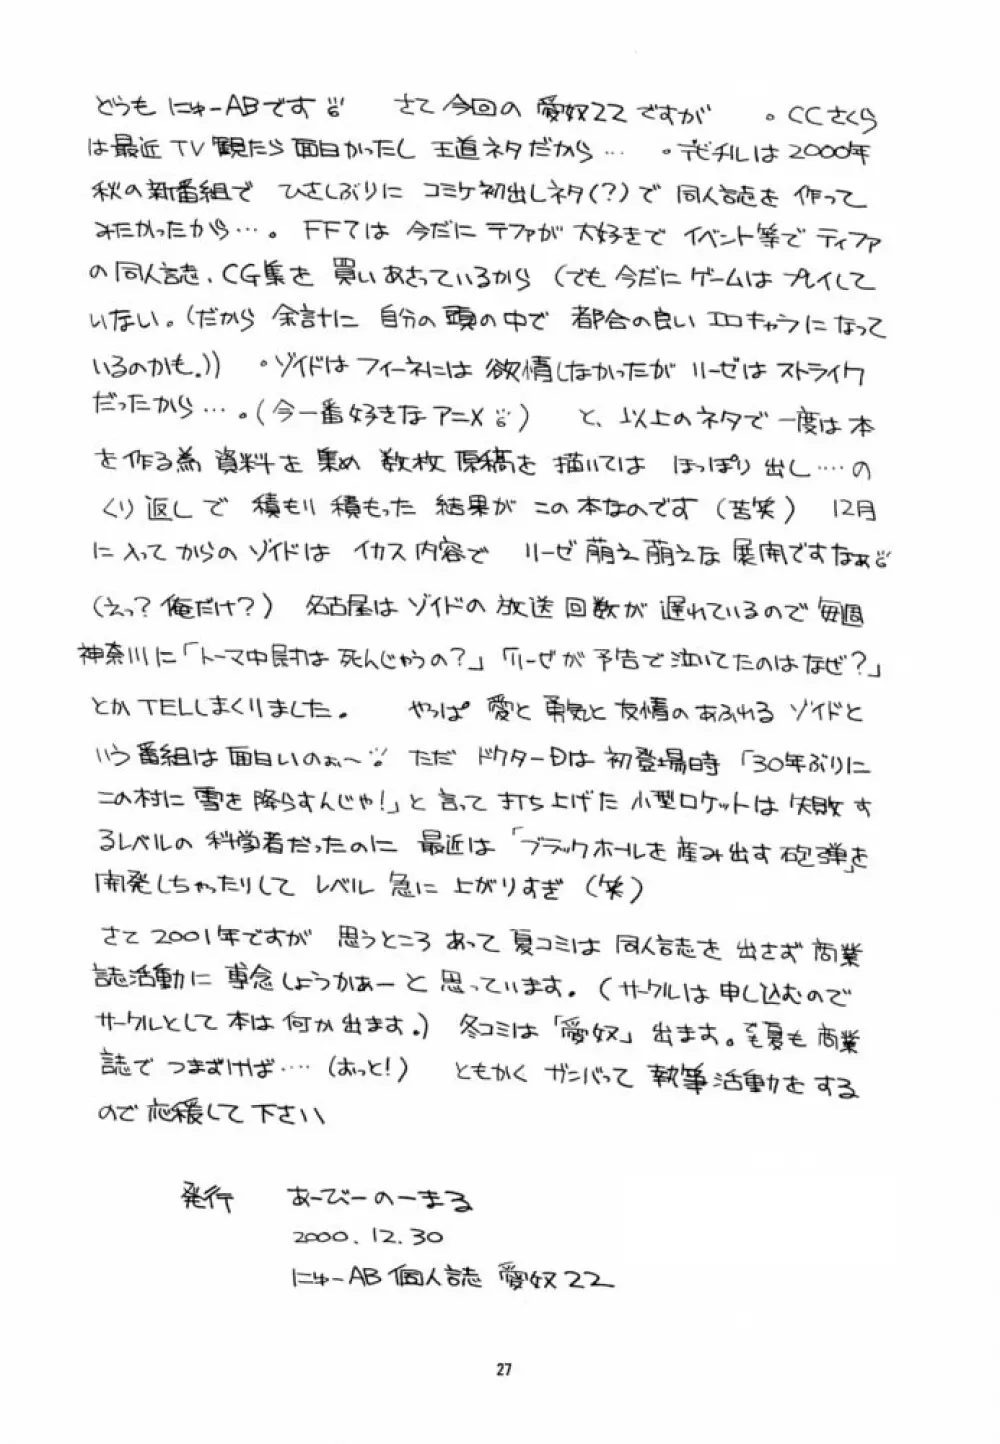 どうも にゅーABです さて 今回の 愛奴22ですが 。CCさくら
は最近 TV 観たら 面白かったし 王道ネタだから… 。デビチルは 2000年
秋の新番組で ひさしぶりに コミケ初出しネタ(?)で 同人誌を 作って
みたかったから…。FF7は 今だに ティファが 大好きで イベント等で ティファ
の同人誌、CG集を 買いあさっているから (でも 今だに ゲームは プレイして
いない。(だから 余計に 自分の頭の中で 都合の良い エロキャラになって
いるのかも。)) 。ゾイドは フィーネには 欲情しなかったが リーゼは ストライク
だったから…。(今一番好きな アニメ) と、以上のネタで 一度は本
を作る為 資料を 集め 数枚 原稿を 描いては ほっぽり出し‥‥の
くり返しで 積もり積もった 結果が この本なのです (苦笑) 12月
に入ってからの ゾイドは イカス内容で リーゼ萌え萌えな 展開ですなぁ
(えっ?俺だけ?) 名古屋は ゾイドの 放送回数が 遅れているので 毎週
神奈川に「トーマ中尉は 死んじゃうの?」「リーゼが 予告で泣いてたのはなぜ?」
とかTELしまくりました。 やっぱ 愛と 勇気と 友情の あふれる ゾイドと
いう番組は 面白いのぉ〜 ただ ドクターDは 初登場時 「30年ぶりに
この村に 雪を降らすんじゃ!」と 言って 打ち上げた 小型ロケットは 失敗す
るレベルの 科学者だったのに 最近は「ブラックホールを 産み出す 砲弾」を
開発しちゃったりして レベル 急に 上がりすぎ (笑)
さて 2001年ですが 思うところ あって 夏コミは 同人誌を 出さず 商業
誌活動に 専念しようかあーと 思っています。(サークルは 申し込むので
サークルとして 本は 何か 出ます。) 冬コミは「愛奴」出ます。でも夏も 商業
誌で つまずけば‥‥(おっと!) ともかく ガンバって 執筆活動をする
ので 応援して 下さい
発行 あーびーのーまる
2000.12.30
にゅーAB個人誌 愛奴22
27